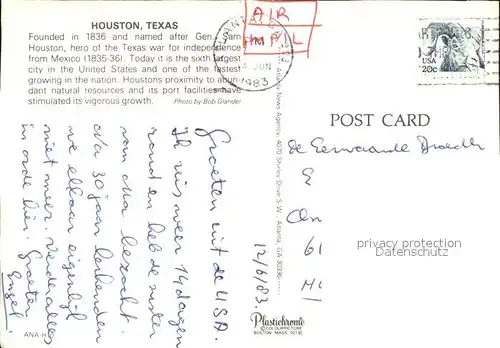 HOUSTON, TEXAS
Founded in 1836 and named after Gen. Sam
Houston, hero of the Texas war for independence
from Mexico (1835-36). Today it is the sixth largest
city in the United States and one of the fastest
growing in the nation. Houstons proximity to abun-
dant natural resources and its port facilities have
stimulated its vigorous growth.
Photo by Bob Glander
AIR
MAIL
JUN
1983
USA
20c
News Agency, 4070 Shirley Drive S.W., Atlanta, GA 30336
POST CARD
De Eerwaarde
61
12/6/83.
Groeten uit de USA.
Ik reis weer 14 dagen
rond en heb de zuster
van Ma bezocht.
Na 30 jaar herkenden
we elkaar eigenlijk
niet meer. Verder alles
in orde hier. Groeten
ANA-H
Plastichrome
COLOURPICTURE
BOSTON, MASS. 02130
protected
copyright protection